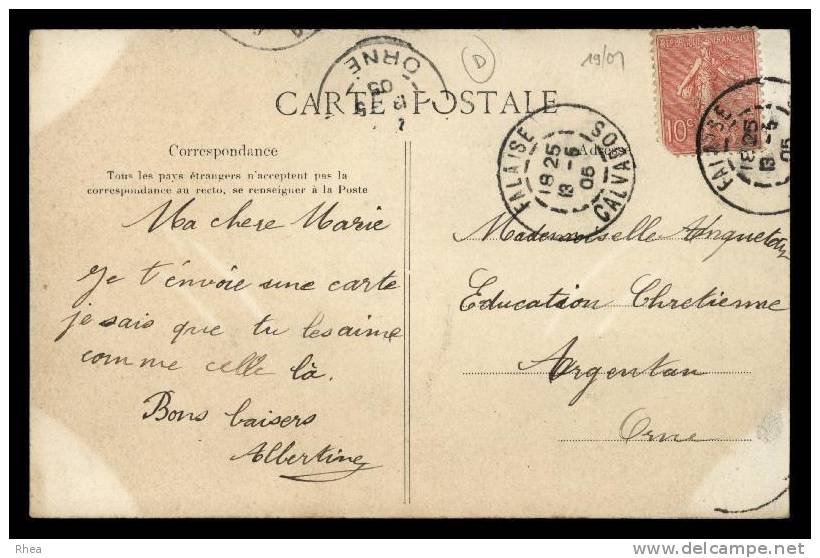 D
19/01
ORNE
05
CARTE POSTALE
REPUBLIQUE FRANÇAISE
10c
FALAISE
18 25
13 -5
05
CALVADOS
FALAISE
18 25
13 -5
05
Correspondance
Adresse
Tous les pays étrangers n'acceptent pas la
correspondance au recto, se renseigner à la Poste
Ma chere Marie
Je t'envoie une carte
je sais que tu les aime
comme celle là.
Bons baisers
Albertine
Mademoiselle Anquetin
Education Chretienne
Argentan
Orne
Rhea
delcampe.net